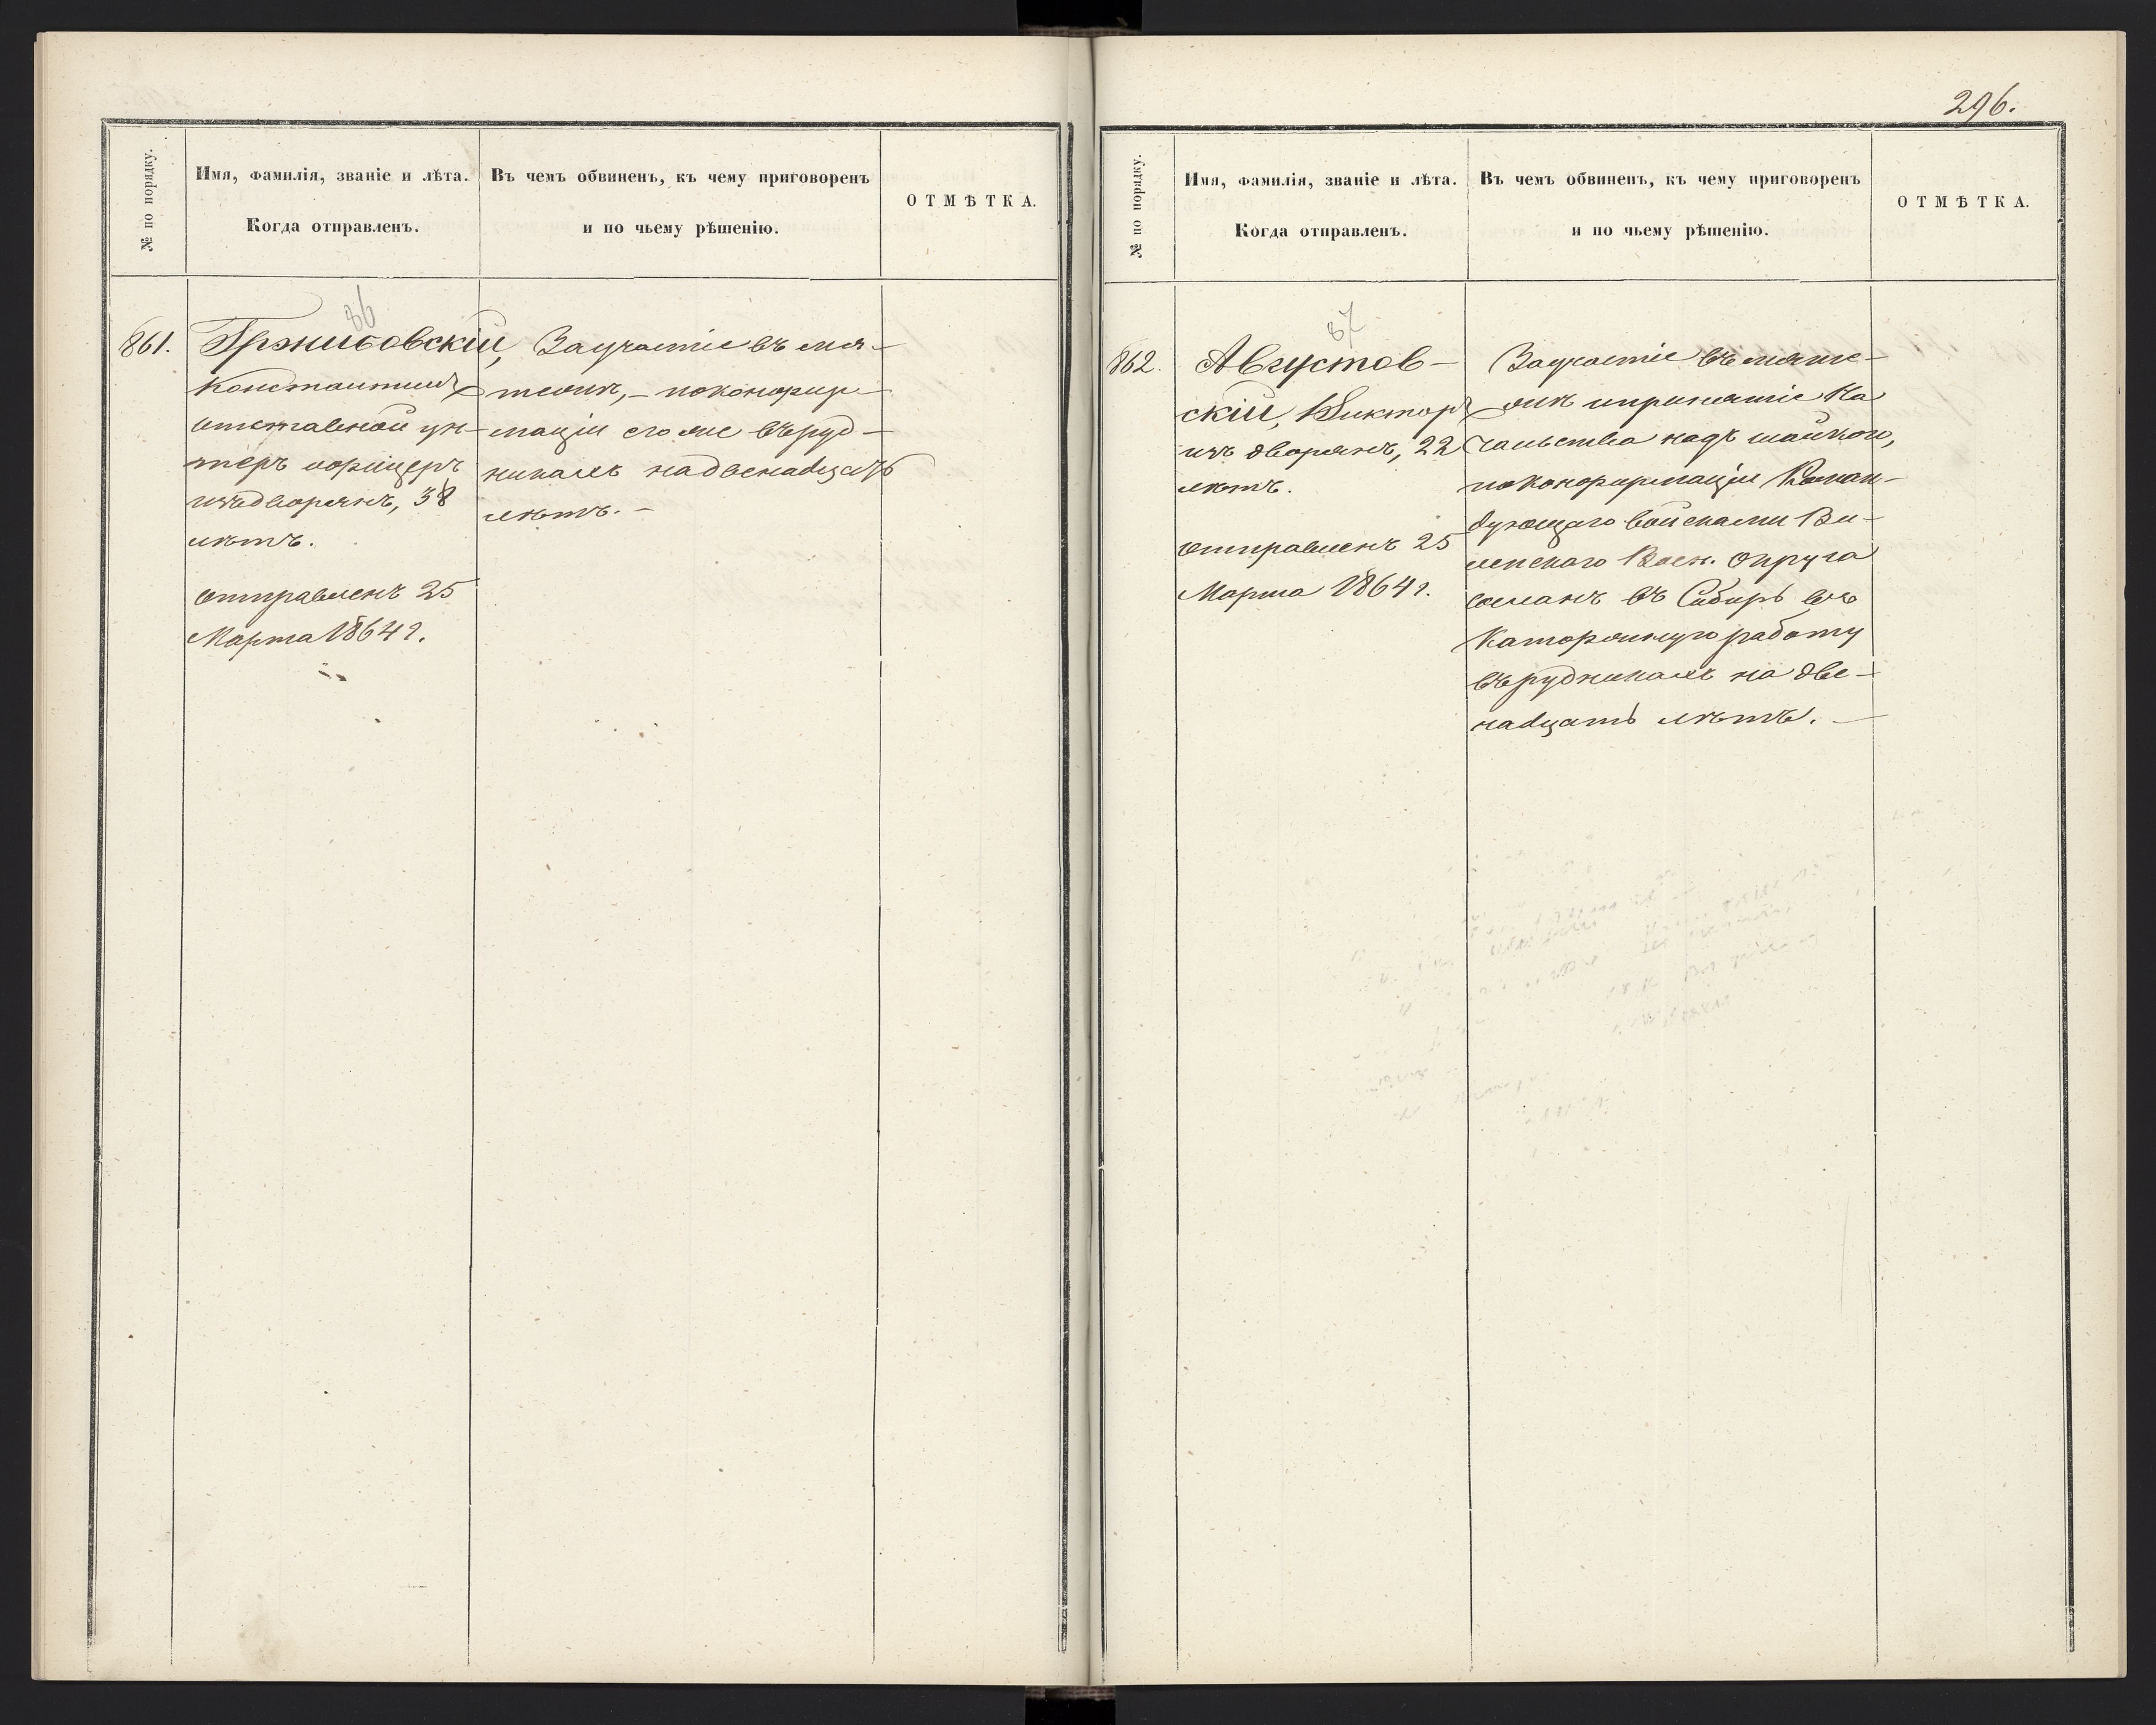 № по порядку.
Имя, фамилія, званіе и лѣта.
Когда отправленъ.
Въ чемъ обвиненъ, къ чему приговоренъ
и по чьему рѣшенію.
ОТМѢТКА.
86
861.
Константинъ
отставной ун-
теръ офицеръ
изъ дворянъ, 38
лѣтъ.
Отправленъ 25
Марта 1864 г.
За участіе въ мя-
тежѣ, – по конфир-
маціи его же въ руд-
никахъ на двенадцать
лѣтъ. –
296.
№ по порядку.
Имя, фамилія, званіе и лѣта.
Когда отправленъ.
Въ чемъ обвиненъ, къ чему приговоренъ
и по чьему рѣшенію.
ОТМѢТКА.
87
862.
Августов-
скій, Викторъ
изъ дворянъ, 22
лѣтъ.
Отправленъ 25
Марта 1864 г.
За участіе въ мяте-
жѣ и принятіе На
чальства надъ шайкою,
по конфирмаціи Коман-
дующаго войсками Ви-
ленскаго Воен. Округа
сосланъ въ Сибирь въ
Каторжную работу
въ рудникахъ на две-
надцать лѣтъ. –